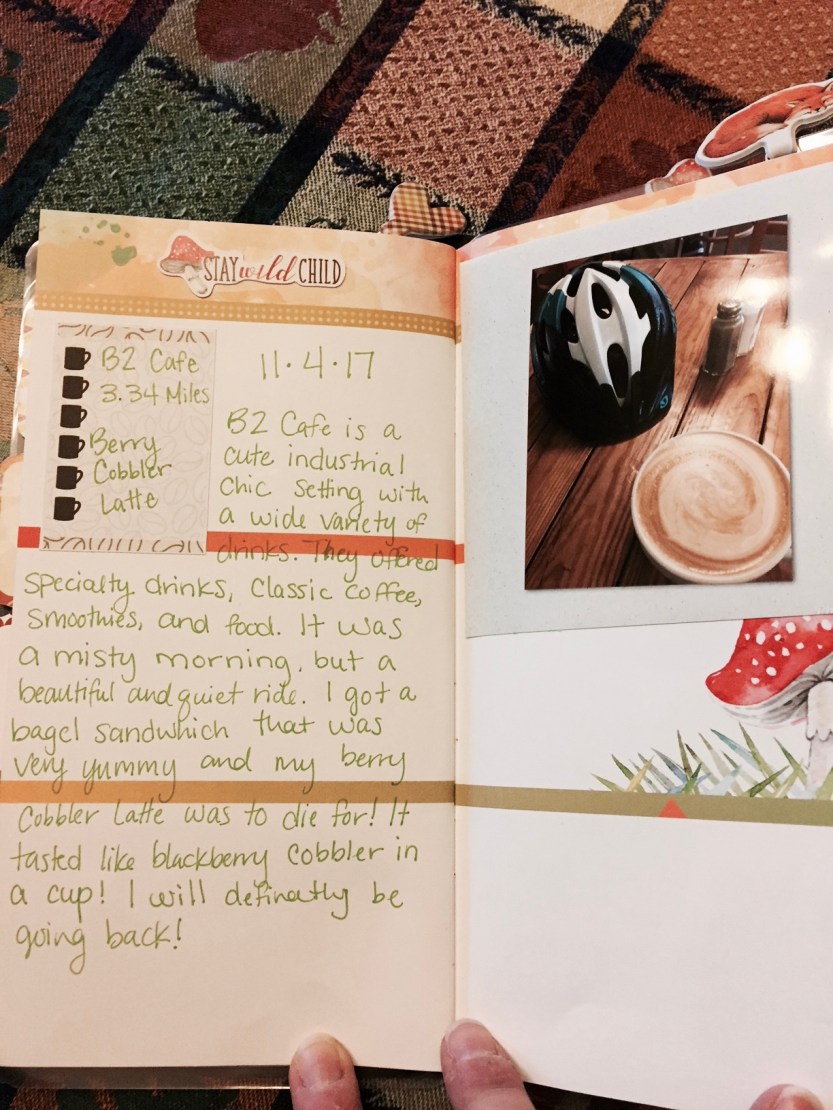 STAY wild CHILD
B2 Cafe
3.34 Miles
Berry
Cobbler
Latte
11·4·17
B2 Cafe is a
cute industrial
chic setting with
a wide variety of
drinks. They offered
specialty drinks, classic coffee,
smoothies, and food. It was
a misty morning, but a
beautiful and quiet ride. I got a
bagel sandwhich that was
very yummy and my berry
cobbler latte was to die for! It
tasted like blackberry cobbler in
a cup! I will definatly be
going back!